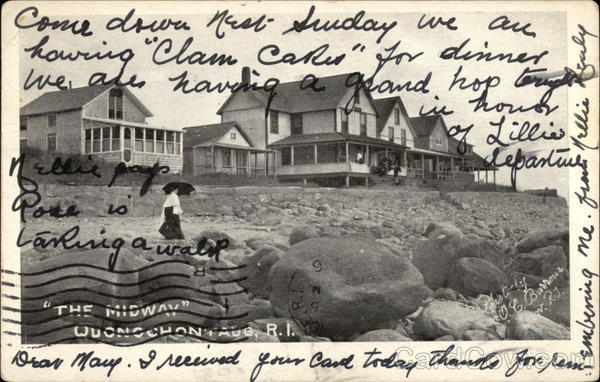 Come down Next Sunday we are
having "Clam Cakes" for dinner
We are having a grand hop tonight
in honor
of Lillie
department
Nellie says
Rose is
taking a walk
"THE MIDWAY"
QUONOCHONTAUG, R.I.
Photo by
R.I.
Dear Mary. I received your Card today thanks for rem-
embering me. from Nellie Healy
CardCow.com